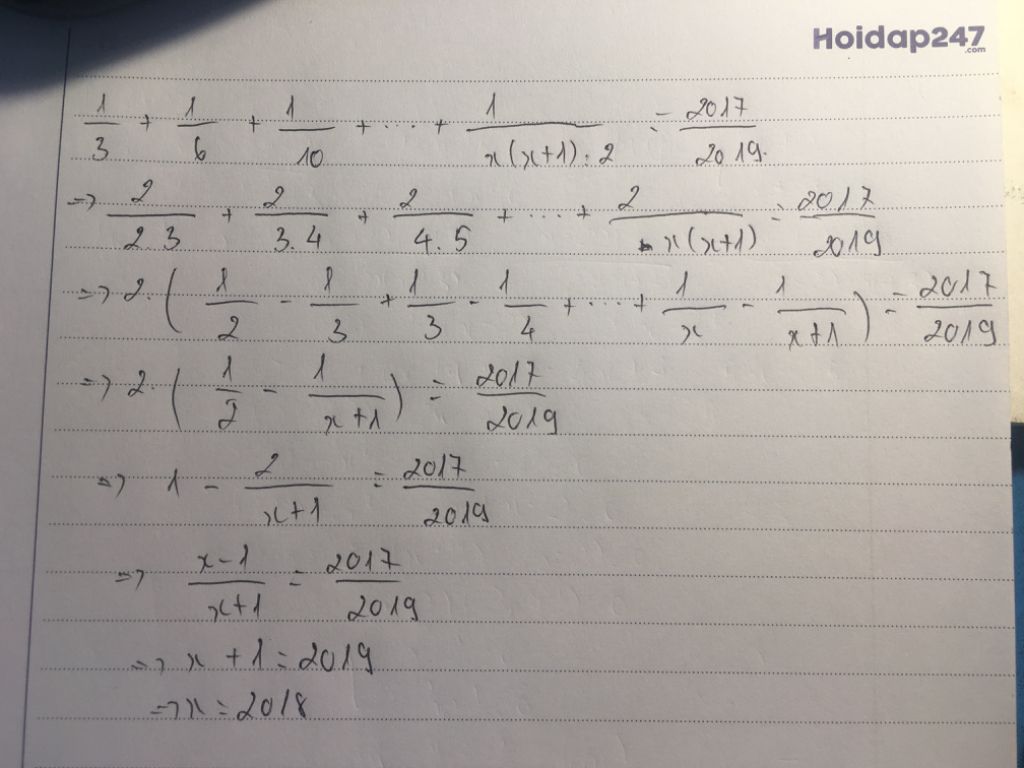 Hoidap247
.com
1/3 + 1/6 + 1/10 + ... + 1/x(x+1):2 = 2017/2019.
=> 2/2.3 + 2/3.4 + 2/4.5 + ... + 2/x(x+1) = 2017/2019
=> 2.(1/2 - 1/3 + 1/3 - 1/4 + ... + 1/x - 1/x+1) = 2017/2019
=> 2.(1/2 - 1/x+1) = 2017/2019
=> 1 - 2/x+1 = 2017/2019
=> x-1/x+1 = 2017/2019
=> x+1 = 2019
=> x = 2018